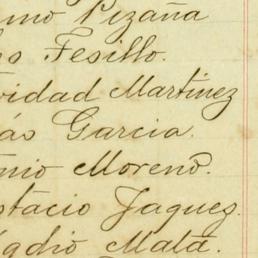 mo Pizaña
os Fesillo.
vidad Martinez
ás Garcia.
nio Moreno.
stacio Jaquez.
gdio Mata.